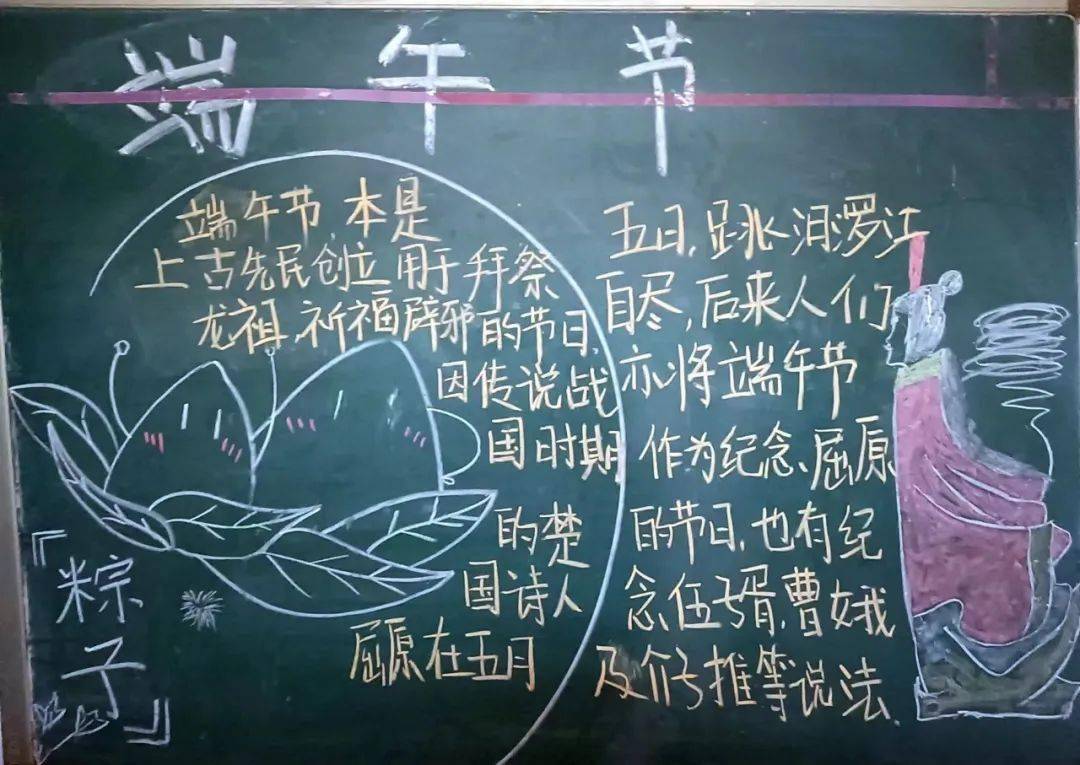 端午节
端午节,本是
上古先民创立用于拜祭
龙祖、祈福辟邪的节日,
因传说战
国时期
的楚
国诗人
屈原在五月
五日,跳汨罗江
自尽,后来人们
亦将端午节
作为纪念、屈原
的节日,也有纪
念伍子胥、曹娥
及介子推等说法.
『粽子』